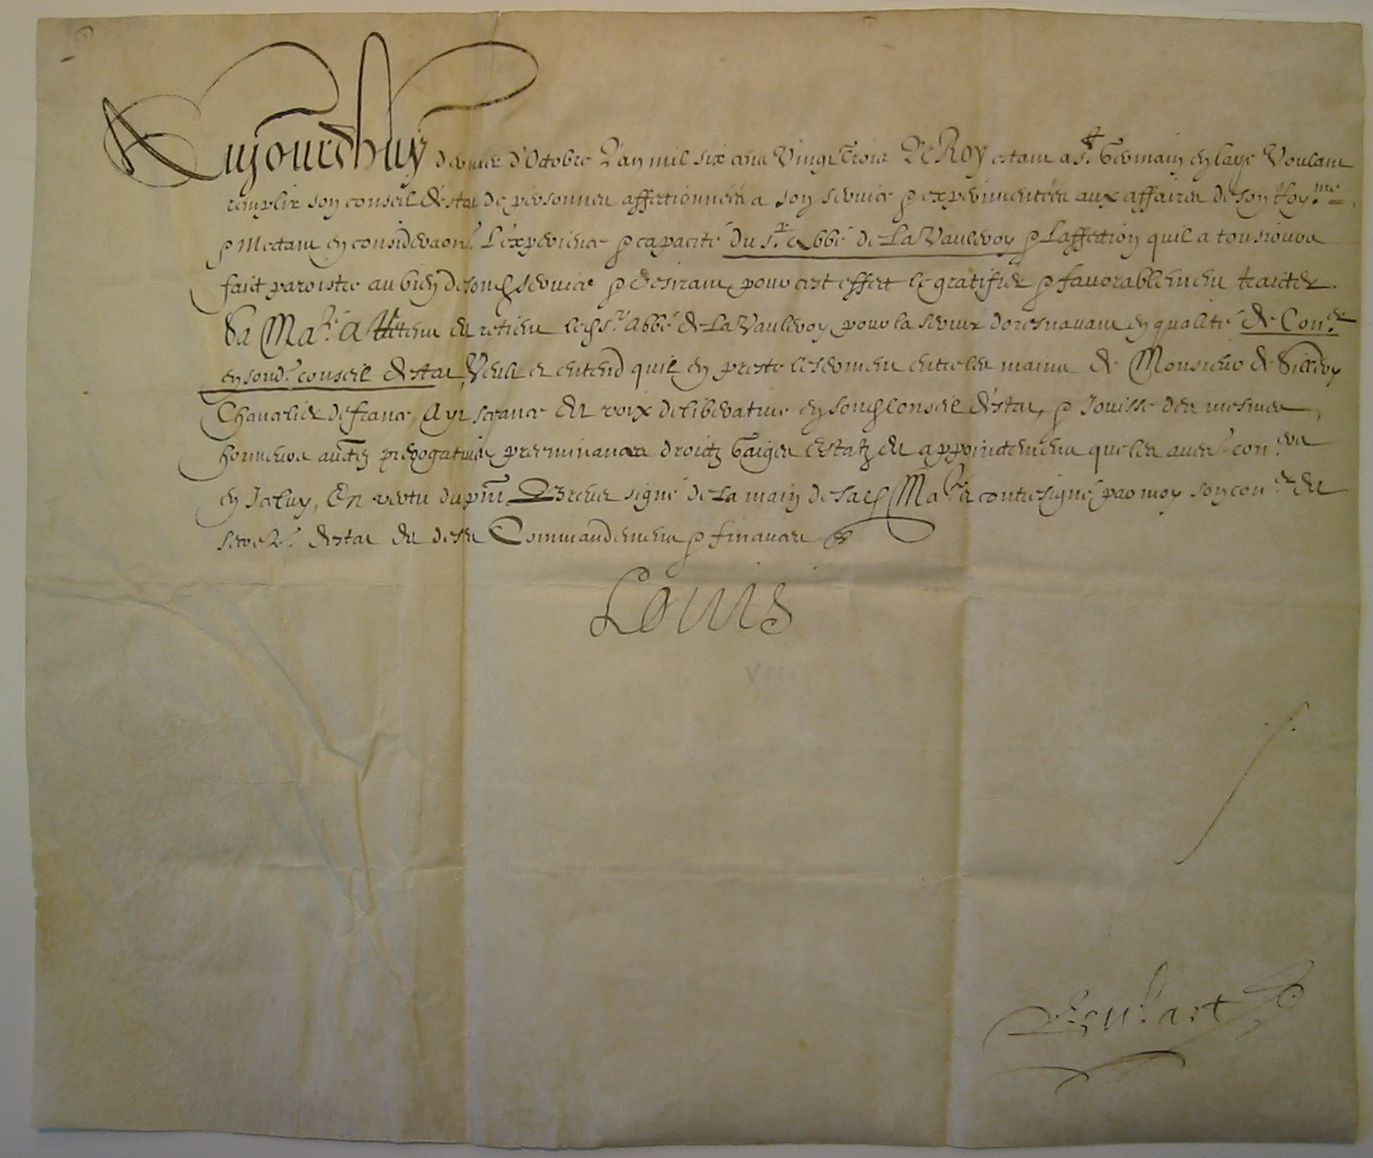 Aujourdhuy dernier d'Octobre L'an mil six cens Vingt Trois Le Roy estant a St. Germain en laye Voulant
remplir son conseil d'estat de personnes affectionnées a son service & experimentées aux affaires de son Roy.me
& Mettant en consideraon. L'experience & capacité du Sr. Abbé de La Vauleroy & L'affection quil a tousiours
faict paroistre au bien de sond. service & desirant pour cest effect le gratifier & favorablement traicter
Sa Ma.té A retenu et retient led. Sr. Abbé de La Vauleroy pour la servir doresnavant en qualité de Con.er
en sond. conseil d'estat Veult et entend quil en preste le serment entre les mains de Monsieur de Sillery
Chancelier de france, Ayt seance et voix deliberative en sond. Conseil d'estat, & Jouisse des mesmes
honneurs auctez prerogatives preeminances droictz Gaiges Estatz et appointemens que les autres con.ers
en Iceluy, En vertu du pnt. Brevet signé de la main de sad. Ma.té et contresigné par moy son con.er et
secre.re d'estat et de ses Commandemens & finances
Louis